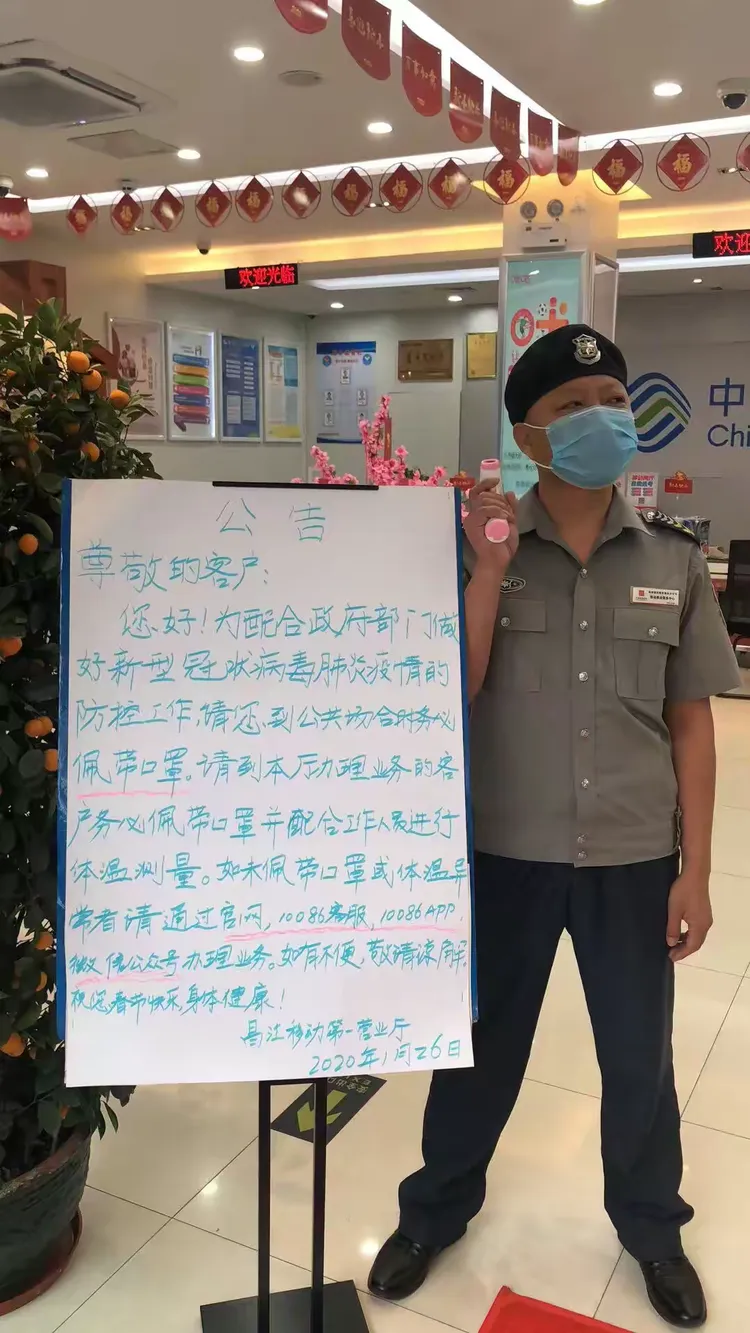 福
福
福
福
福
福
福
福
福
福
福
欢迎光临
欢迎
中
Chi
公告
尊敬的客户:
您好!为配合政府部门做
好新型冠状病毒肺炎疫情的
防控工作,请您到公共场合时务必
佩带口罩。请到本厅办理业务的客
户务必佩带口罩并配合工作人员进行
体温测量。如未佩带口罩或体温异
常者请通过官网,10086客服,10086APP,
微信公众号办理业务。如有不便,敬请谅解。
祝您春节快乐,身体健康!
昌江移动第一营业厅
2020年1月26日